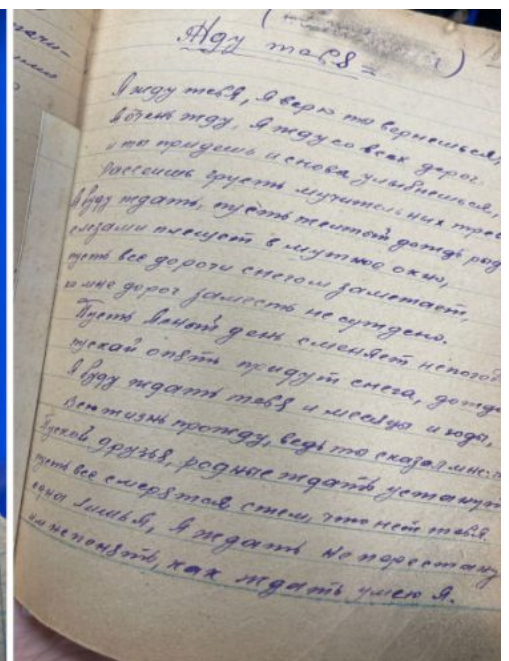 Жду тебя =
Я жду тебя, я верю ты вернешься,
я очень жду, я жду со всех дорог.
и ты придешь и снова улыбнешься,
рассеишь грусть мучительных трев
Я буду ждать, пусть желтый дождь
слезами плещет в мутное окно,
пусть все дороги снегом заметает,
ко мне дорог заместь не суждено.
Пусть ясный день сменяет непогод
пускай опять придут снега, дожд
Я буду ждать тебя и месяца и годы,
Всю жизнь прожду, ведь ты сказал мне:
Пускай друзья, родные ждать устанут
пусть все смерятся с тем, что нет тебя
одна лишь я, я ждать не перестану
им непонять, как ждать умею я.